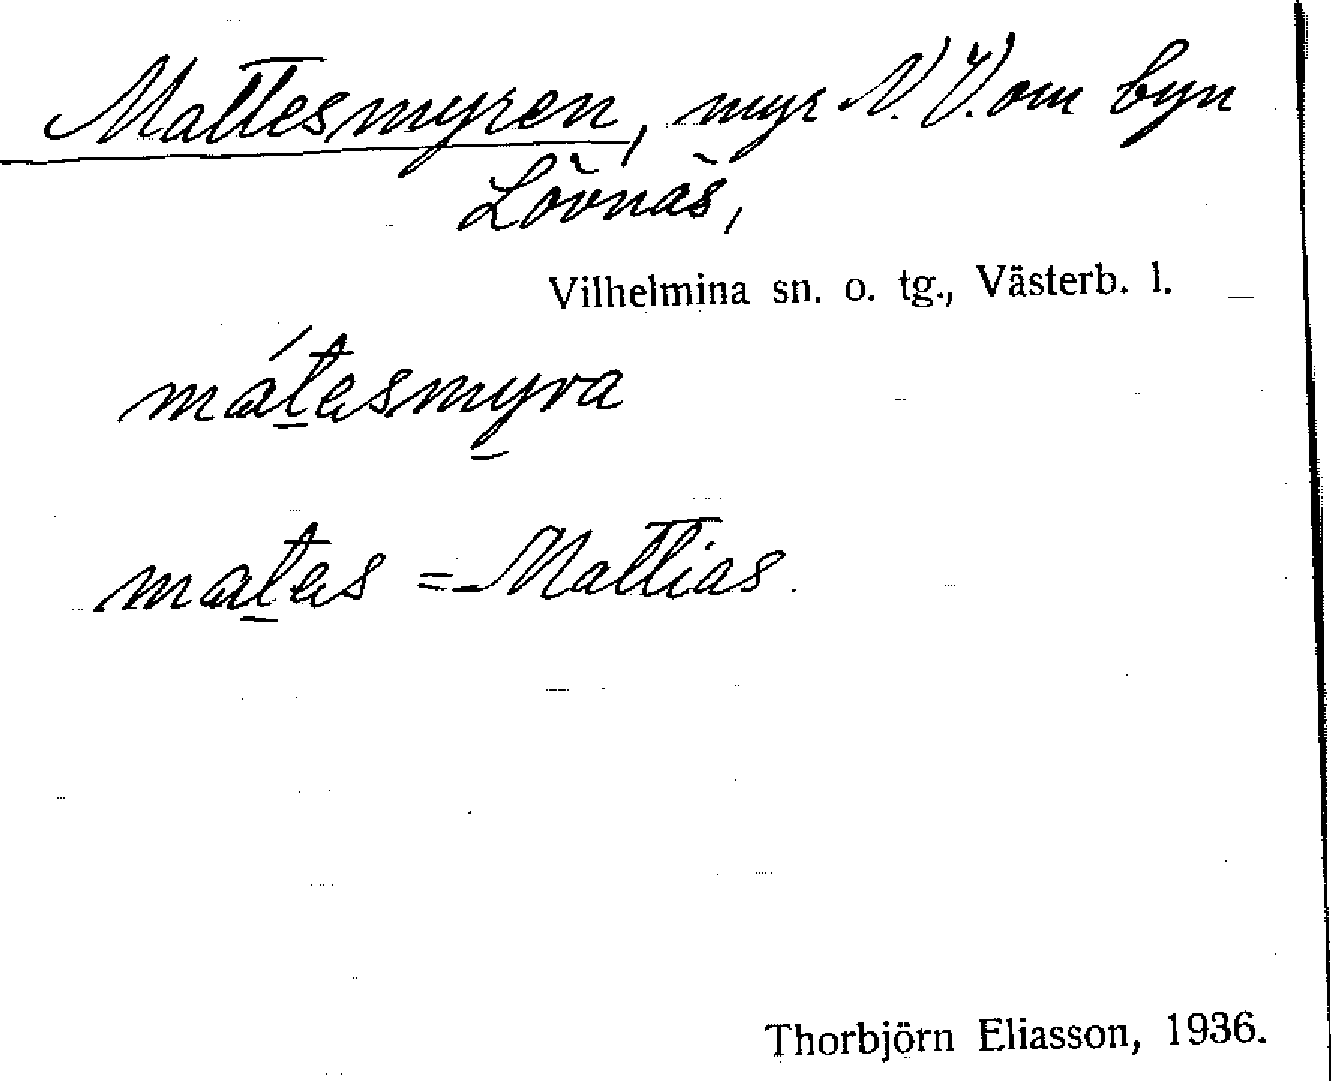 Mattesmyren, myr N.V. om byn
Lövnäs,
Vilhelmina sn. o. tg., Västerb. l.
mátesmyra
mates = Mattias.
Thorbjörn Eliasson, 1936.